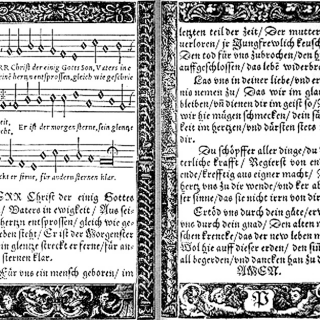 RR Christ der einig Gottes Son, Vaters inn e
seinē hertzn entsprossen, gleich wie geschrie
eit,
cht. Er ist der morgen sterne, sein glentze
ckt er ferne, für andern sternen klar.
ERR Christ der einig Gottes
/ Vaters in ewigkeit / Aus sei
hertzn entsprossen / gleich wie ge
ben steht / Er ist der Morgenster
in glentze streckt er ferne / für an
sternen klar.
Für vns ein mensch geboren / im
letzten teil der zeit / Der mutter
verloren / jr Jungfrewlich keusch
Den tod für vns zubrochen / den h
auffgeschlossen / das lebē widerbr
Las vns in deiner liebe / vnd er
nis nemen zu / Das wir im glau
bleiben / vñ dienen dir im geist so /
wir hie mügen schmecken / dein sü
keit im hertzen / vnd dürsten stets
dir.
Du schöpffer aller dinge / du
terliche krafft / Regierst von end
ende / krefftig aus eigner macht /
hertz vns zu dir wende / vnd ker ab
ser sinne / das sie nicht irrn von dir
Ertöd vns durch dein güte / er
vns durch dein gnad / Den alten m
schen krencke / das der new leben m
Wol hie auff dieser erden / den sin
all begerden / vnd dancken han zu d
AMEN.
P